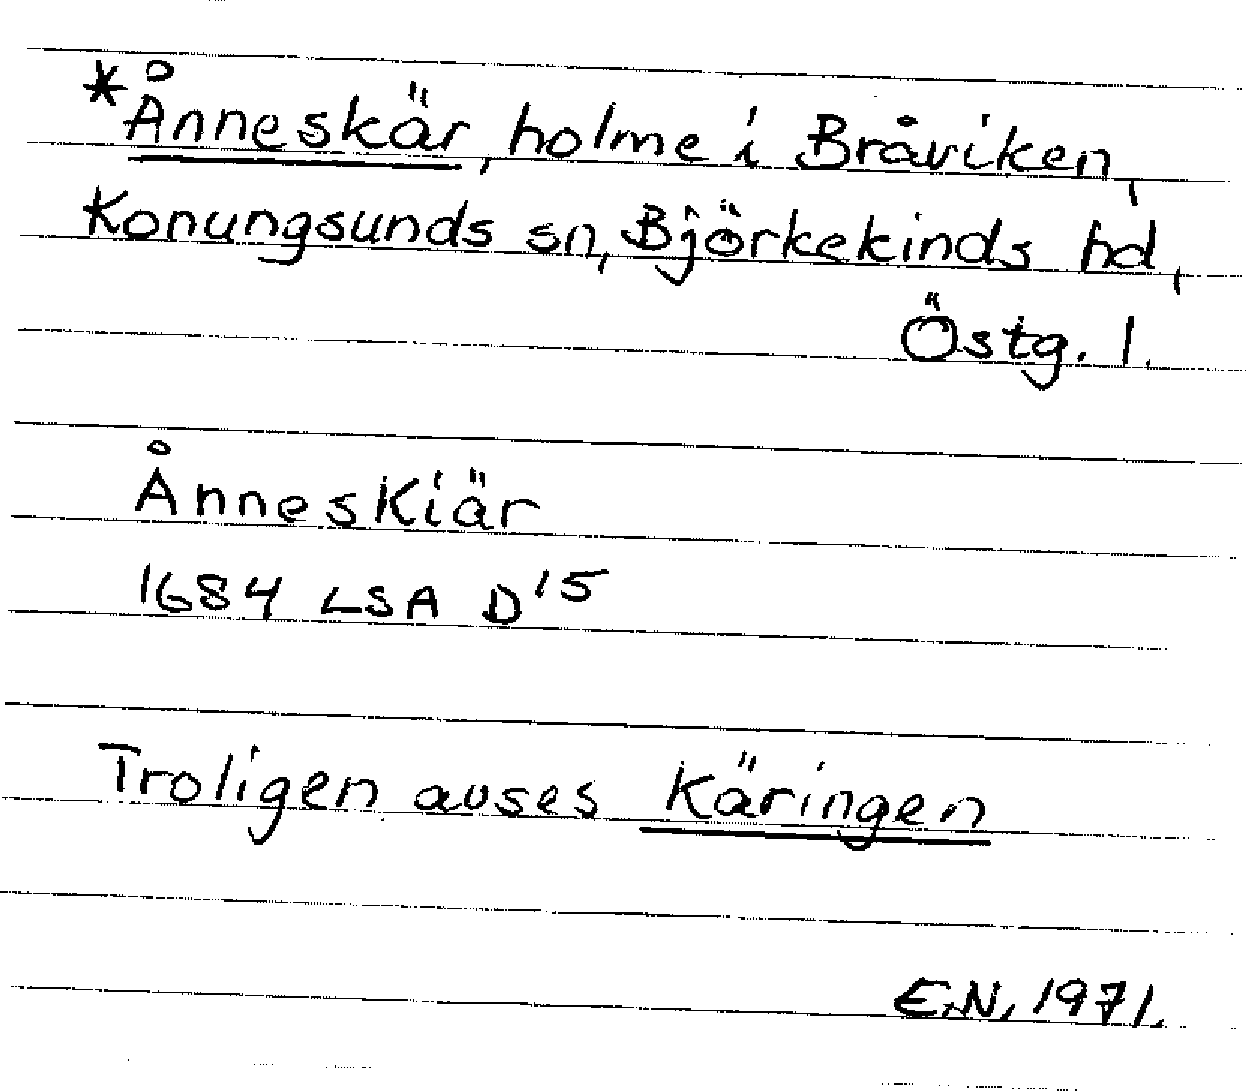 *Ånneskär, holme i Bråviken,
Konungsunds sn, Björkekinds hd,
Östg. l.
Ånneskiär
1684 LSA D'15
Troligen avses Käringen
E.N. 1971.